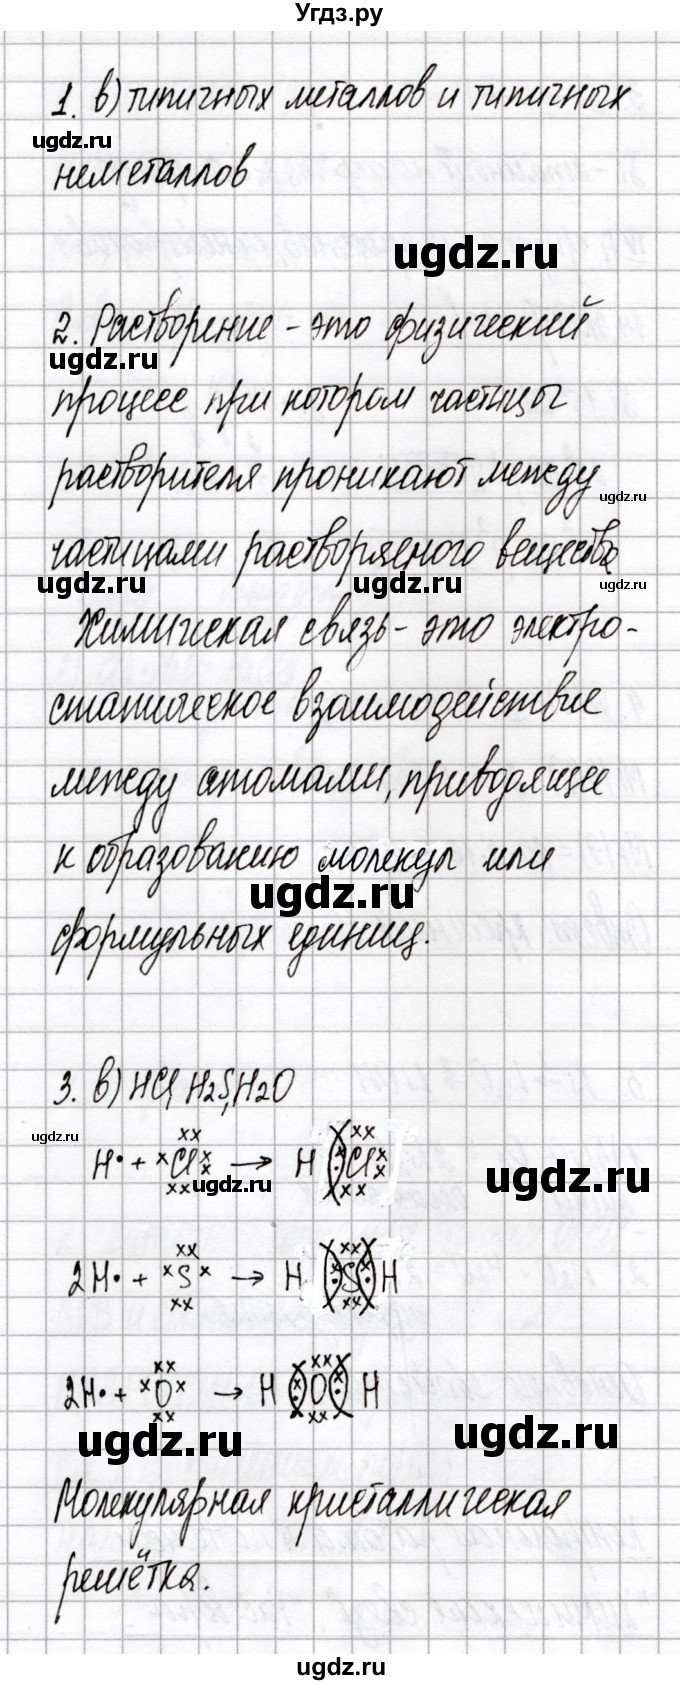 Угдз.ру
1. в) типичных металлов и типичных
ugdz.ru
неметаллов
ugdz.ru
2. Растворение - это физический
ugdz.ru
процесс при котором частицы
растворителя проникают между
ugdz.ru
частицами растворяемого вещества
ugdz.ru ugdz.ru ugdz.ru
Химическая связь - это электро-
статическое взаимодействие
между атомами, приводящее
к образованию молекул или
ugdz.ru
формульных единиц.
3. в) HCl, H2S, H2O
ugdz.ru
H· + Cl → H Cl
ugdz.ru ugdz.ru
2H· + S → H S H
2H· + O → H O H
ugdz.ru ugdz.ru
Молекулярная кристаллическая
решётка.
ugdz.ru